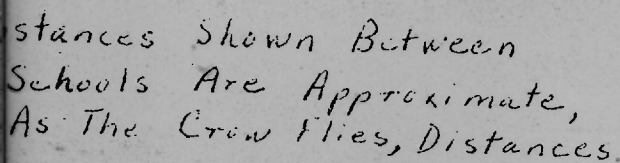 stances Shown Between
Schools Are Approximate,
As The Crow Flies, Distances.